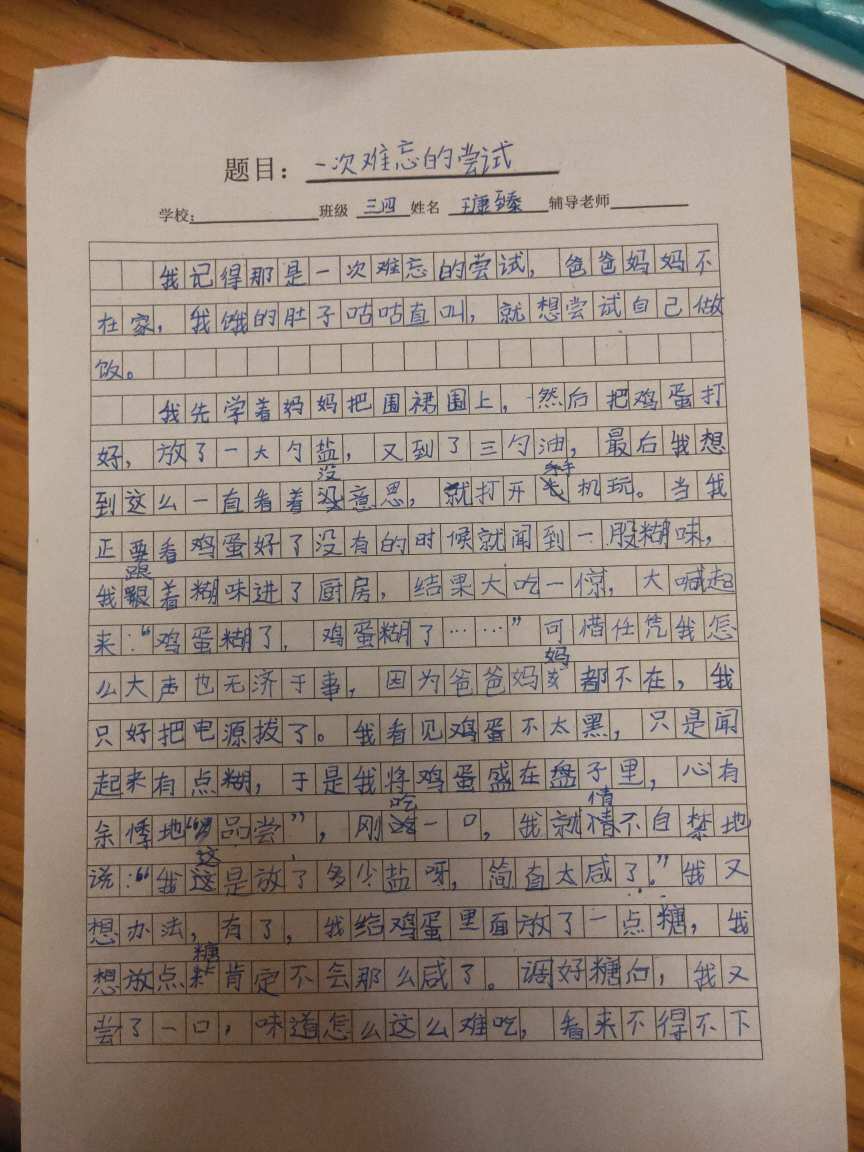 题目：一次难忘的尝试
学校：班级 三四 姓名 王康臻 辅导老师
我记得那是一次难忘的尝试，爸爸妈妈不
在家，我饿的肚子咕咕直叫，就想尝试自己做
饭。
我先学着妈妈把围裙围上，然后把鸡蛋打
好，放了一大勺盐，又到了三勺油，最后我想
到这么一直看着没意思，就打开手机玩。当我
正要看鸡蛋好了没有的时候就闻到一股糊味，
我跟着糊味进了厨房，结果大吃一惊，大喊起
来：“鸡蛋糊了，鸡蛋糊了……”可惜任凭我怎
么大声也无济于事，因为爸爸妈妈都不在，我
只好把电源拔了。我看见鸡蛋不太黑，只是闻
起来有点糊，于是我将鸡蛋盛在盘子里，心有
余悸地“品尝”，刚吃一口，我就情不自禁地
说：“我这是放了多少盐呀，简直太咸了。”我又
想办法，有了，我给鸡蛋里面放了一点糖，我
想放点糖肯定不会那么咸了。调好糖后，我又
尝了一口，味道怎么这么难吃，看来不得不下